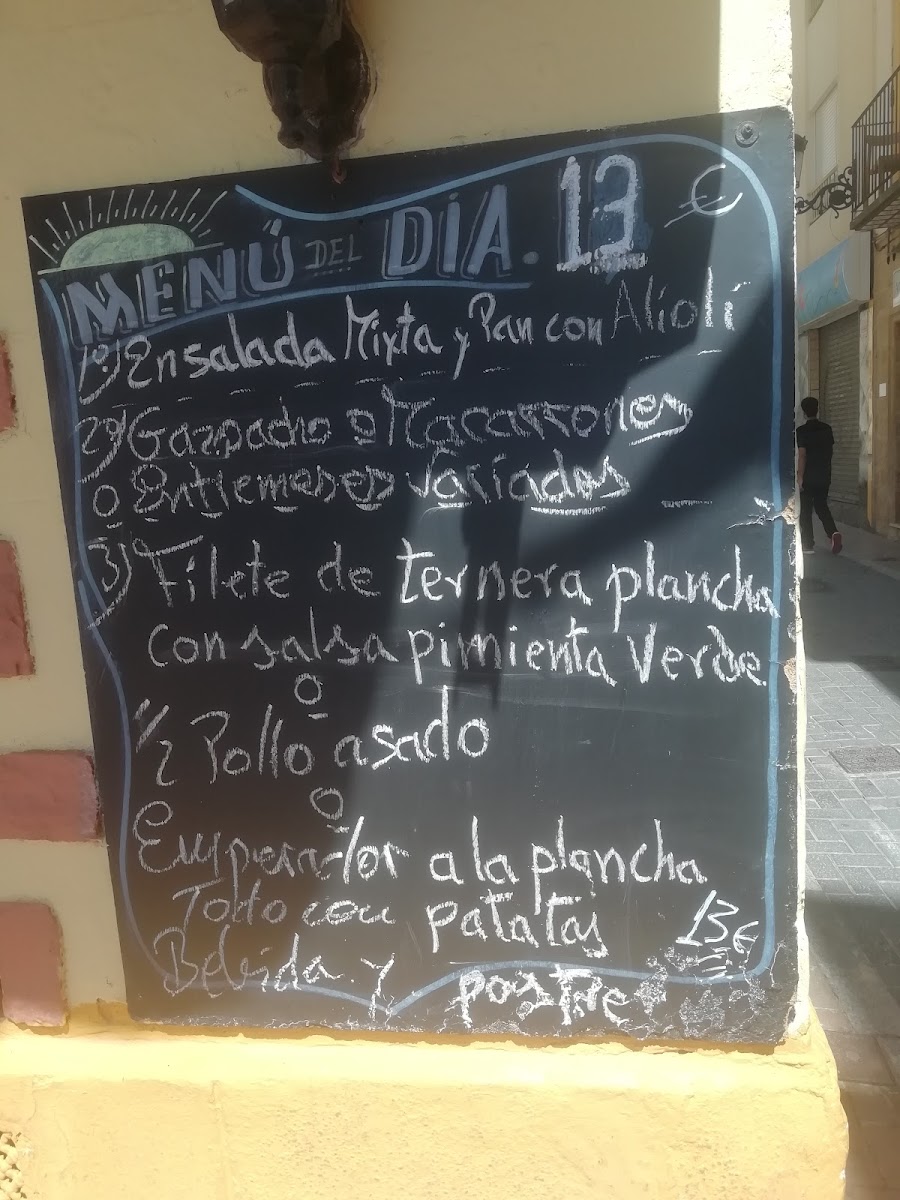 MENÚ DEL DÍA. 13 €
1º) Ensalada Mixta y Pan con Alioli
2º) Gazpacho o Macarrones
o Entremeses variados
3) Filete de ternera plancha
con salsa pimienta Verde
o
1/2 Pollo asado
o
Emperador a la plancha
Todo con patatas 13€
Bebida y postre